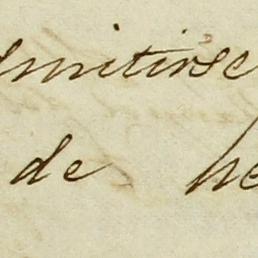 mitirse
de he